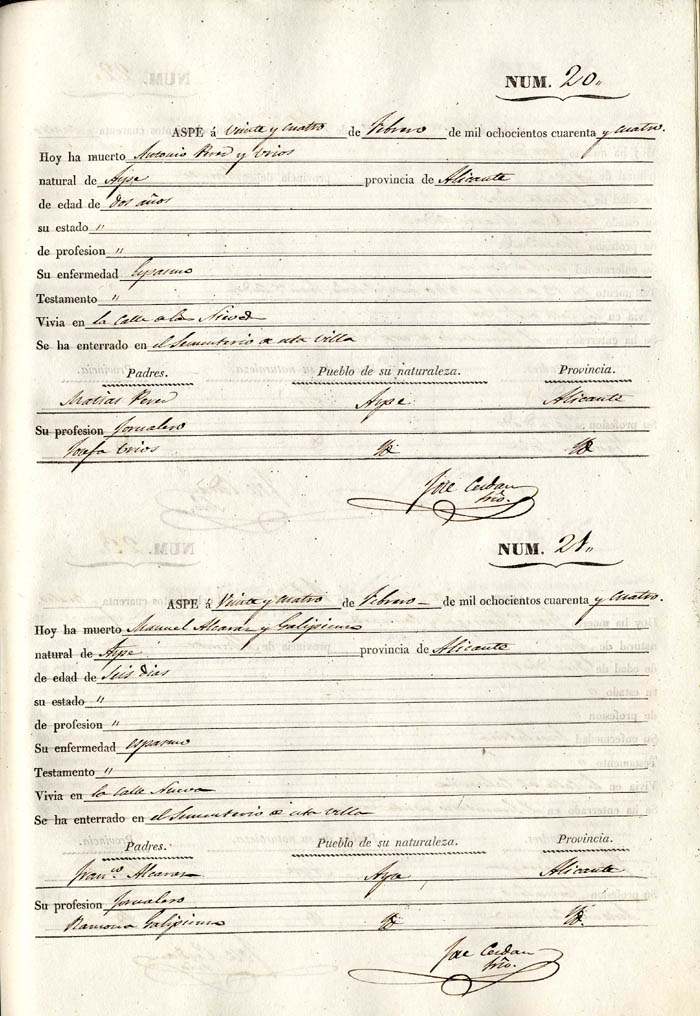 NUM. 20,,
ASPE á veinte y cuatro de Febrero de mil ochocientos cuarenta y cuatro.
Hoy ha muerto Antonio Perez y
natural de Aspe provincia de Alicante
de edad de dos años
su estado "
de profesion "
Su enfermedad Espasmo
Testamento "
Vivia en la Calle a la
Se ha enterrado en el Sementerio de esta Villa
Padres. Pueblo de su naturaleza. Provincia.
Matias Perez Aspe Alicante
Su profesion Jornalero
Josefa Yd Yd
Jose Cerdan
Srio.
NUM. 21,,
ASPE á Veinte y cuatro de Febrero de mil ochocientos cuarenta y cuatro.
Hoy ha muerto Manuel Alcaraz y Galipienso
natural de Aspe provincia de Alicante
de edad de Seis dias
su estado "
de profesion "
Su enfermedad espasmo
Testamento "
Vivia en la Calle Nueva
Se ha enterrado en el Sementerio de esta Villa
Padres. Pueblo de su naturaleza. Provincia.
Franco. Alcaraz Aspe Alicante
Su profesion Jornalero
Ramona Galipienso Yd Yd.
Jose Cerdan
Srio.